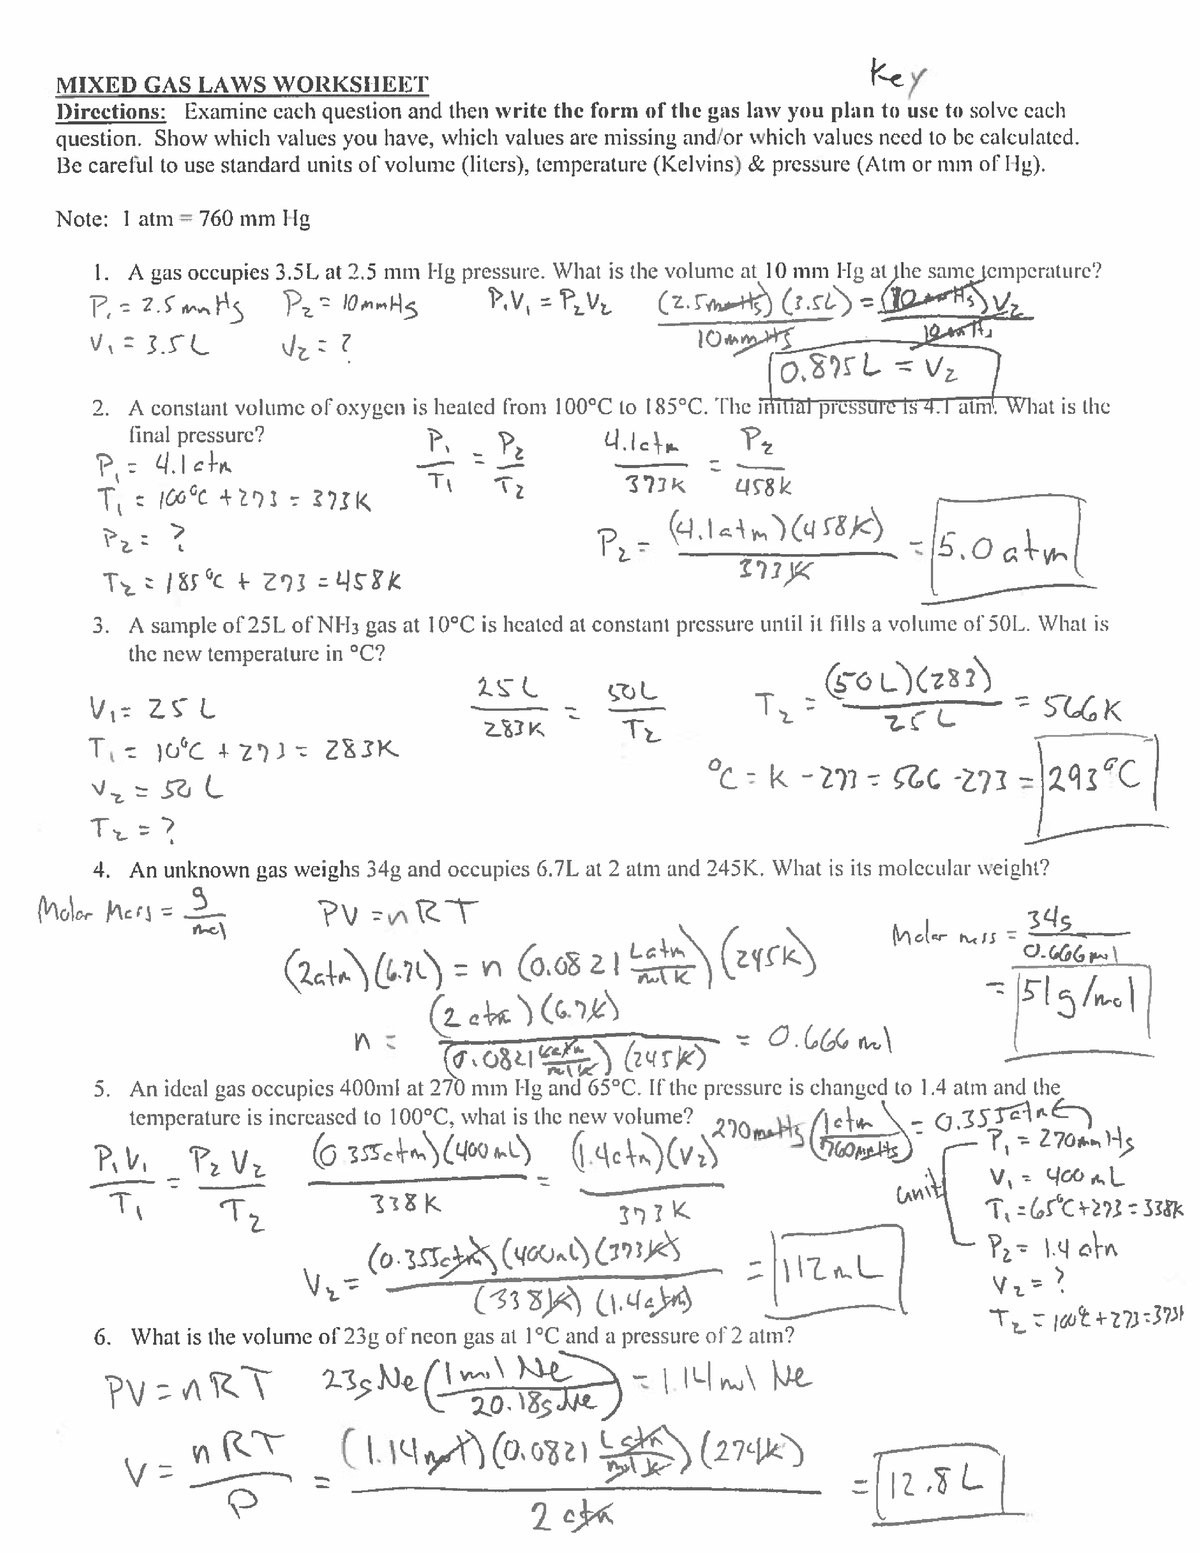 Key
MIXED GAS LAWS WORKSHEET
Directions: Examine each question and then write the form of the gas law you plan to use to solve each
question. Show which values you have, which values are missing and/or which values need to be calculated.
Be careful to use standard units of volume (liters), temperature (Kelvins) & pressure (Atm or mm of Hg).
Note: 1 atm = 760 mm Hg
1. A gas occupies 3.5L at 2.5 mm Hg pressure. What is the volume at 10 mm Hg at the same temperature?
P₁ = 2.5 mmHg P₂ = 10mmHg P₁V₁ = P₂V₂ (2.5mmHg)(3.5L) = (10mmHg)V₂
V₁ = 3.5L V₂ = ? 10mmHg 10mmHg
0.875L = V₂
2. A constant volume of oxygen is heated from 100°C to 185°C. The initial pressure is 4.1 atm. What is the
final pressure?
P₁ = P₂ 4.1atm = P₂
P₁ = 4.1atm
T₁ T₂ 373K 458K
T₁ = 100°C + 273 = 373K
P₂ = ?
P₂ = (4.1atm)(458K) = 5.0atm
373K
T₂ = 185°C + 273 = 458K
3. A sample of 25L of NH3 gas at 10°C is heated at constant pressure until it fills a volume of 50L. What is
the new temperature in °C?
V₁ = 25L 25L = 50L T₂ = (50L)(283) = 566K
283K T₂ 25L
T₁ = 10°C + 273 = 283K
°C = K - 273 = 566 - 273 = 293°C
V₂ = 50L
T₂ = ?
4. An unknown gas weighs 34g and occupies 6.7L at 2 atm and 245K. What is its molecular weight?
Molar Mass = g PV = nRT Molar mass = 34g
mol 0.666mol
(2atm)(6.7L) = n(0.0821 Latm)(245K) = 51g/mol
mol K
n = (2atm)(6.7L) = 0.666mol
(0.0821 Latm)(245K)
mol K
5. An ideal gas occupies 400ml at 270 mm Hg and 65°C. If the pressure is changed to 1.4 atm and the
temperature is increased to 100°C, what is the new volume? 270mmHg(1atm) = 0.355atm
760mmHg
P₁ = 270mmHg
P₁V₁ = P₂V₂ (0.355atm)(400mL) = (1.4atm)(V₂)
T₁ T₂ 338K 373K
unit
V₁ = 400mL
T₁ = 65°C+273 = 338K
P₂ = 1.4atm
V₂ = (0.355atm)(400mL)(373K) = 112mL
(338K)(1.4atm)
V₂ = ?
T₂ = 100°C+273=373K
6. What is the volume of 23g of neon gas at 1°C and a pressure of 2 atm?
PV = nRT 23gNe(1mol Ne) = 1.14mol Ne
20.18gNe
V = nRT = (1.14mol)(0.0821 Latm)(274K) = 12.8L
mol K
P 2atm